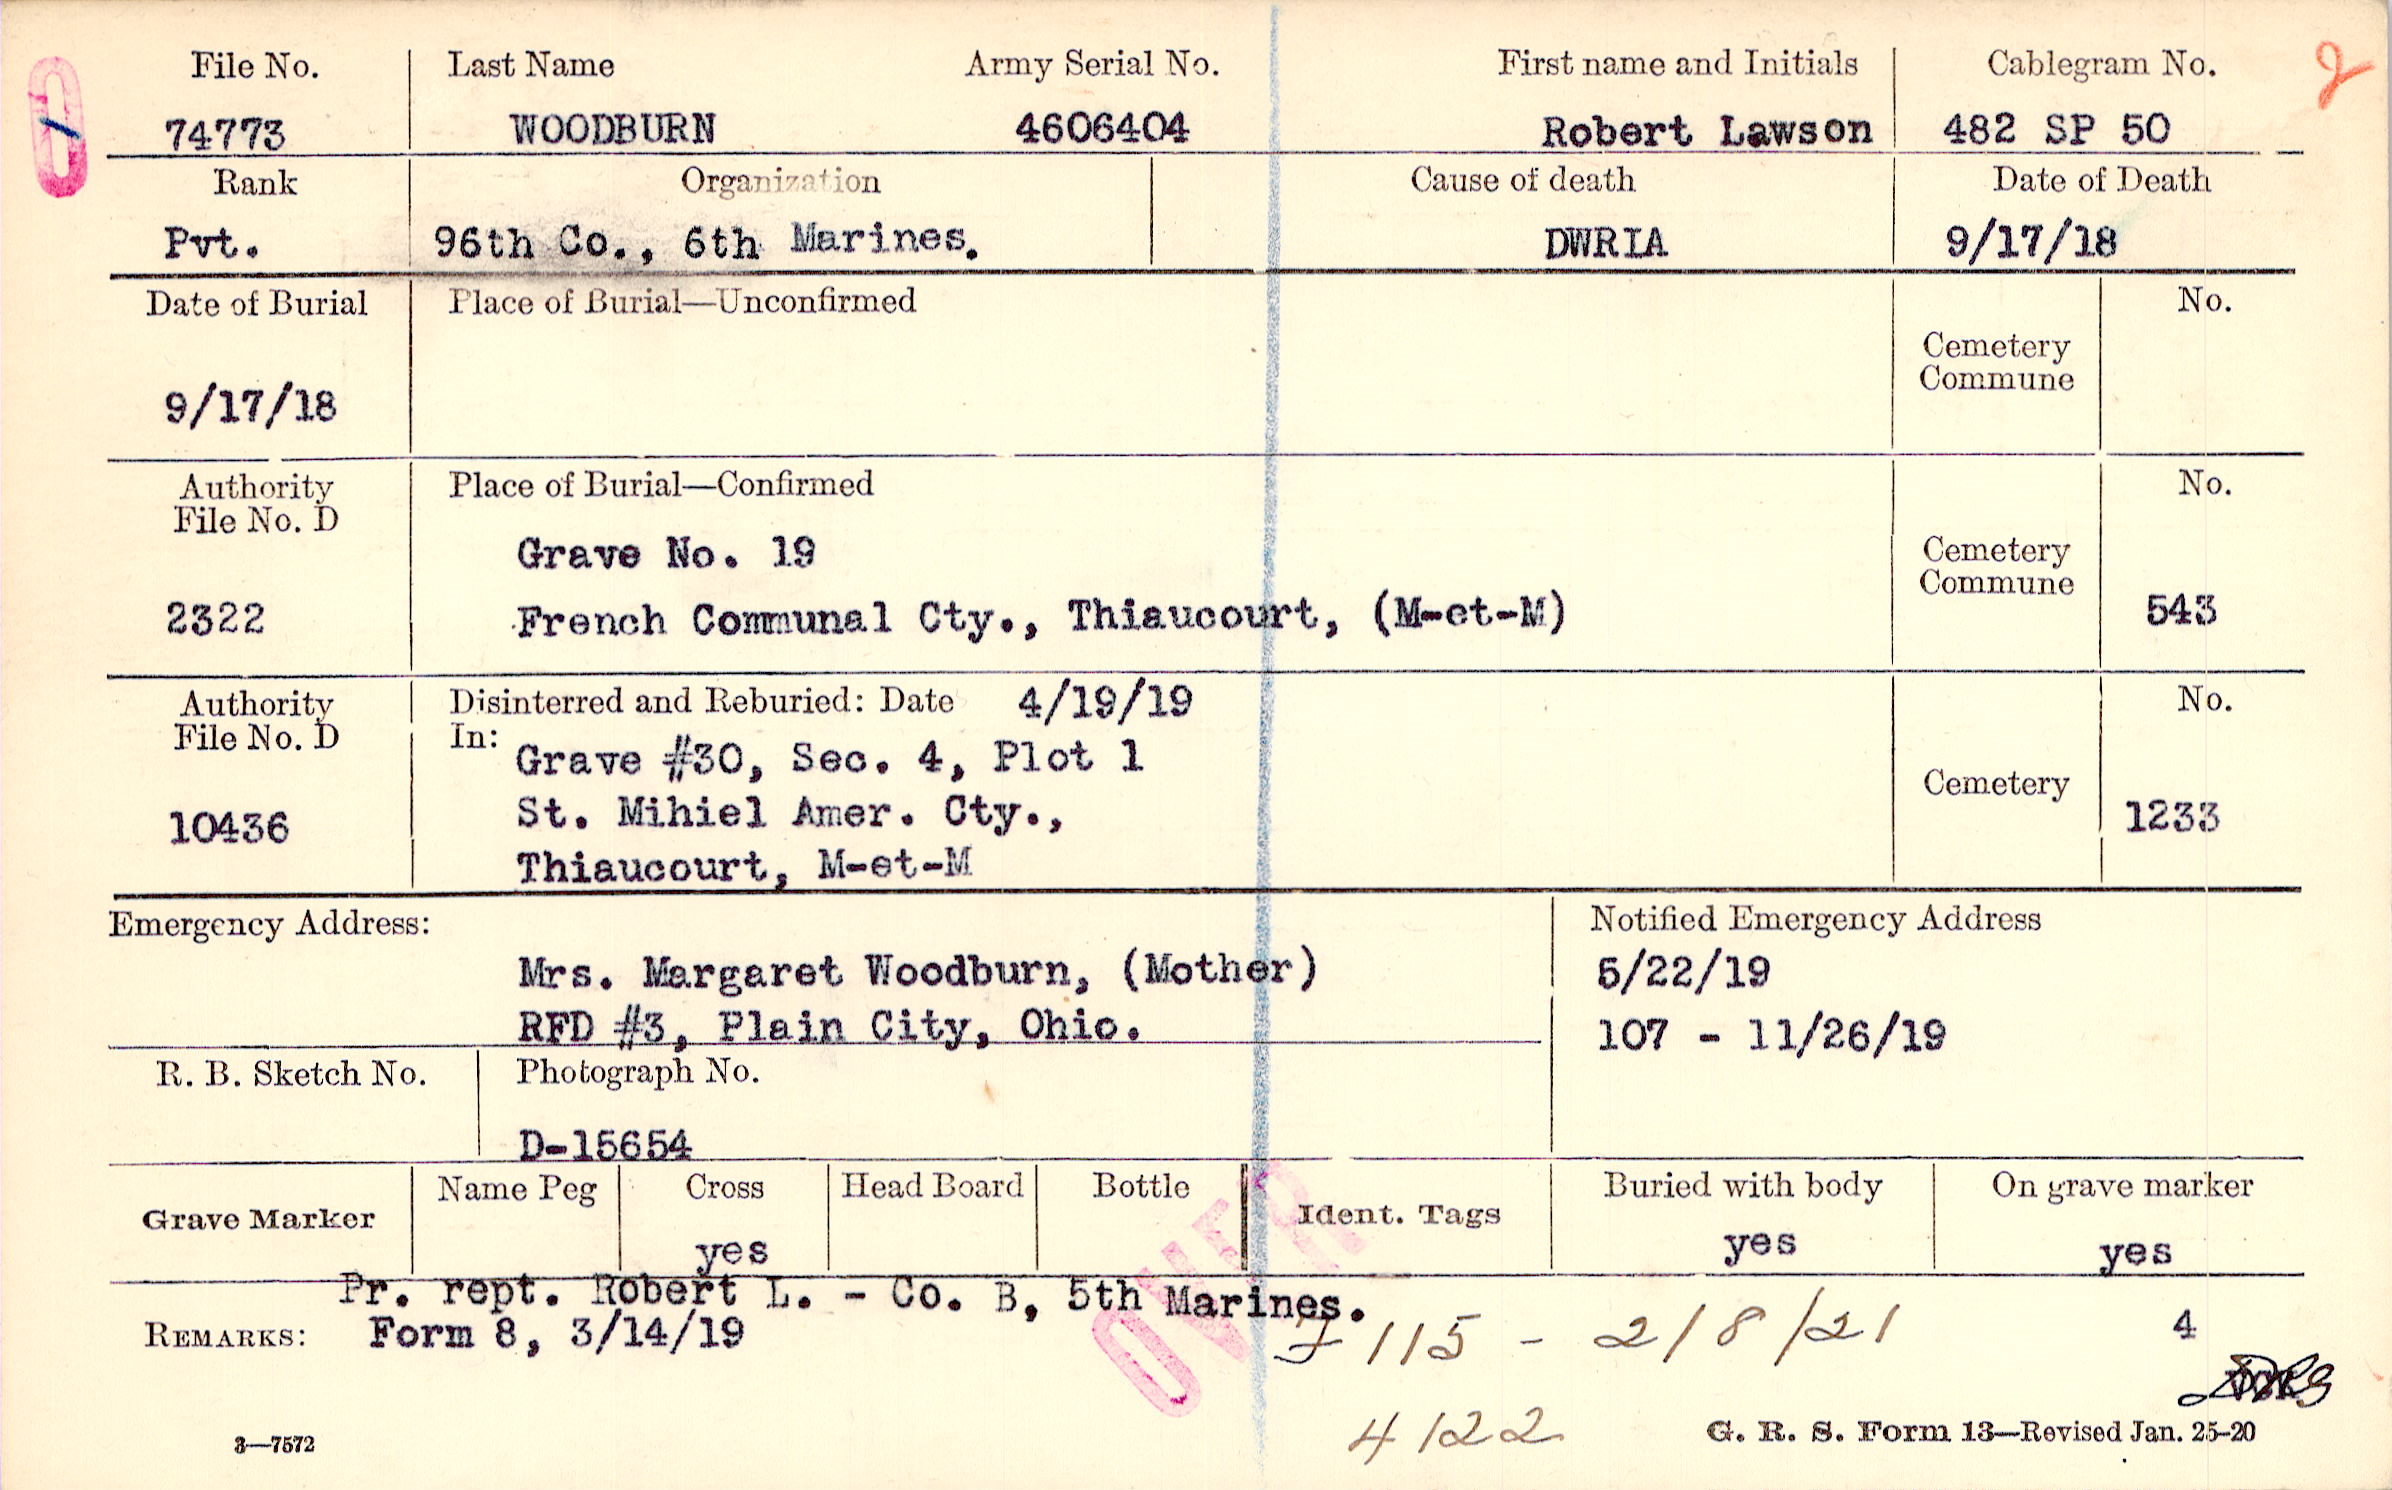 File No. Last Name Army Serial No. First name and Initials Cablegram No. 2
74773 WOODBURN 4606404 Robert Lawson 482 SP 50
Rank Organization Cause of death Date of Death
Pvt. 96th Co., 6th Marines. DWRIA 9/17/18
Date of Burial Place of Burial—Unconfirmed No.
Cemetery
Commune
9/17/18
Authority Place of Burial—Confirmed No.
File No. D
Grave No. 19 Cemetery
Commune
2322 French Communal Cty., Thiaucourt, (M-et-M) 543
Authority Disinterred and Reburied: Date 4/19/19 No.
File No. D In:
Grave #30, Sec. 4, Plot 1
Cemetery
10436 St. Mihiel Amer. Cty., 1233
Thiaucourt, M-et-M
Emergency Address: Notified Emergency Address
Mrs. Margaret Woodburn, (Mother) 5/22/19
RFD #3, Plain City, Ohio. 107 - 11/26/19
R. B. Sketch No. Photograph No.
D-15654
Name Peg Cross Head Board Bottle Buried with body On grave marker
Grave Marker Ident. Tags
yes yes yes
OVER
Pr. rept. Robert L. - Co. B, 5th Marines.
REMARKS: Form 8, 3/14/19 115 - 2/8/21 4
4122
3—7572 G. R. S. Form 13—Revised Jan. 25-20